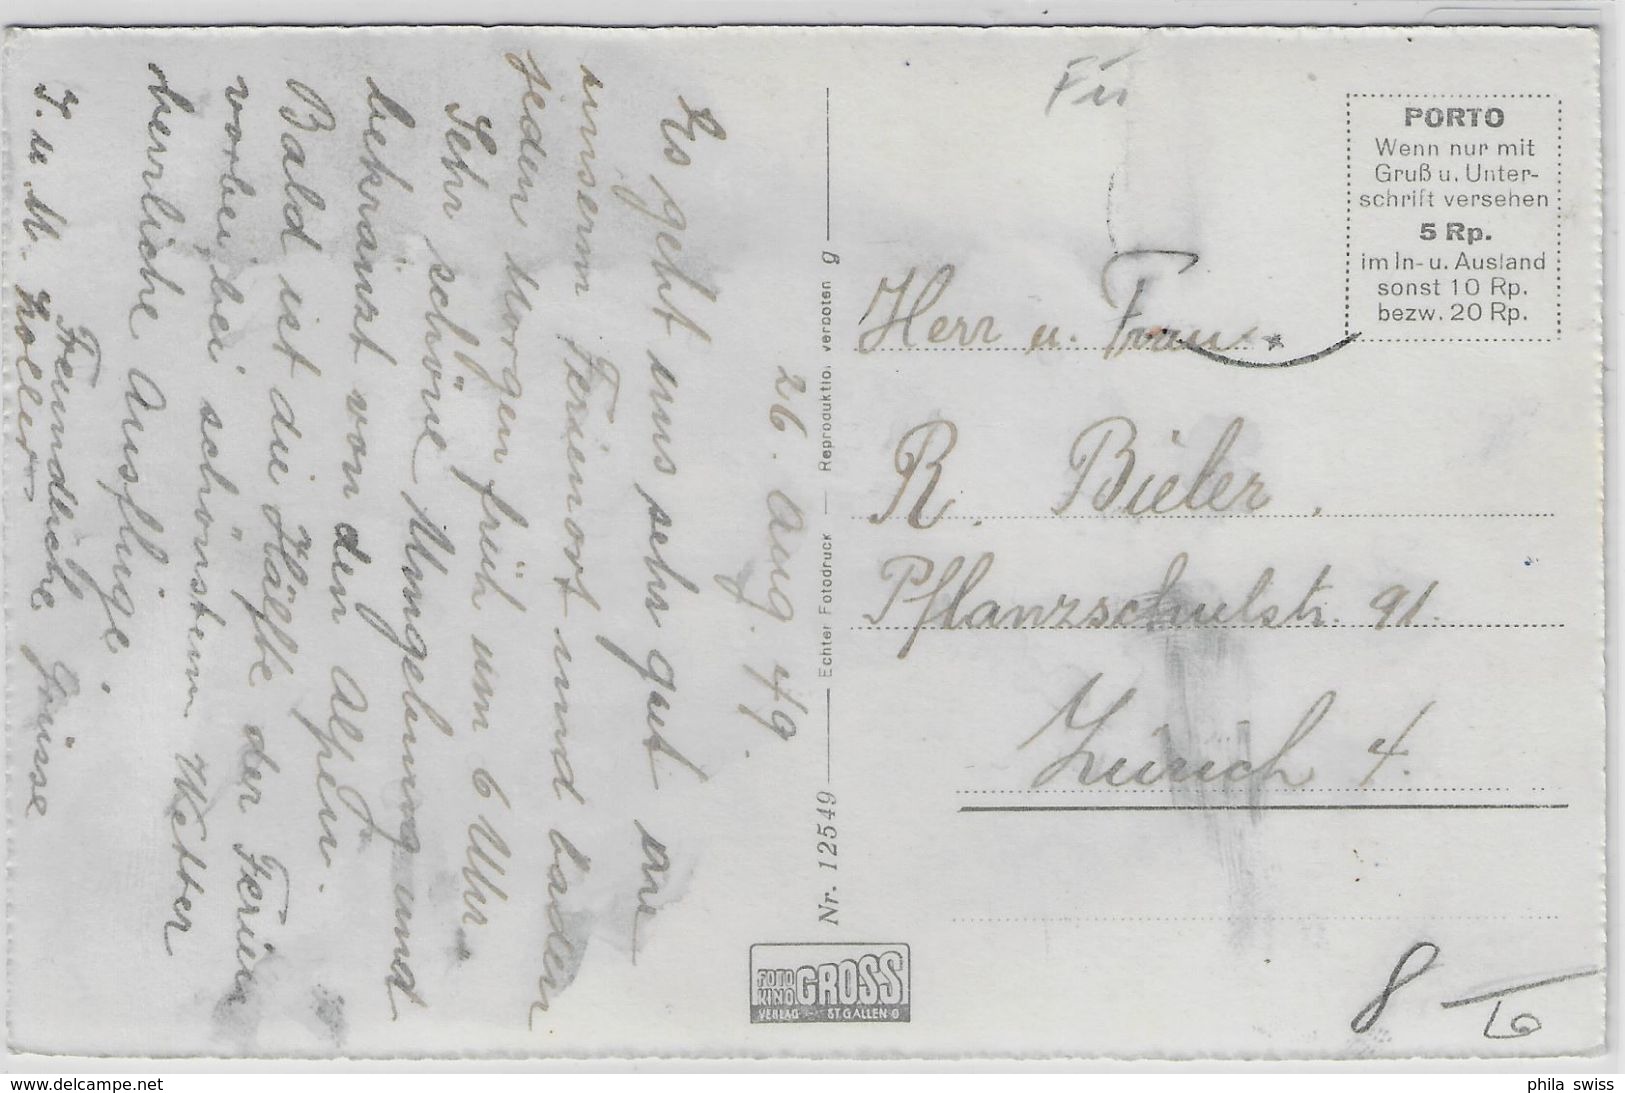 26. Aug. 49.
Es geht uns sehr gut an
unserm Ferienort und baden
jeden Morgen früh um 6 Uhr.
Sehr schöne Umgebung und
bekränzt von den Alpen.
Bald ist die Hälfte der Ferien
vorbei, bei schönstem Wetter
herrliche Ausflüge.
Freundliche Grüsse
J. u. M. Koller
Nr. 12549 — Echter Fotodruck — Reproduktio. verboten g
Fü
PORTO
Wenn nur mit
Gruß u. Unter-
schrift versehen
5 Rp.
im In- u. Ausland
sonst 10 Rp.
bezw. 20 Rp.
Herr u. Frau
R. Bieler.
Pflanzschulstr. 91.
Zürich 4.
FOTO
KINO GROSS
VERLAG ST. GALLEN O
8
10
www.delcampe.net
phila swiss